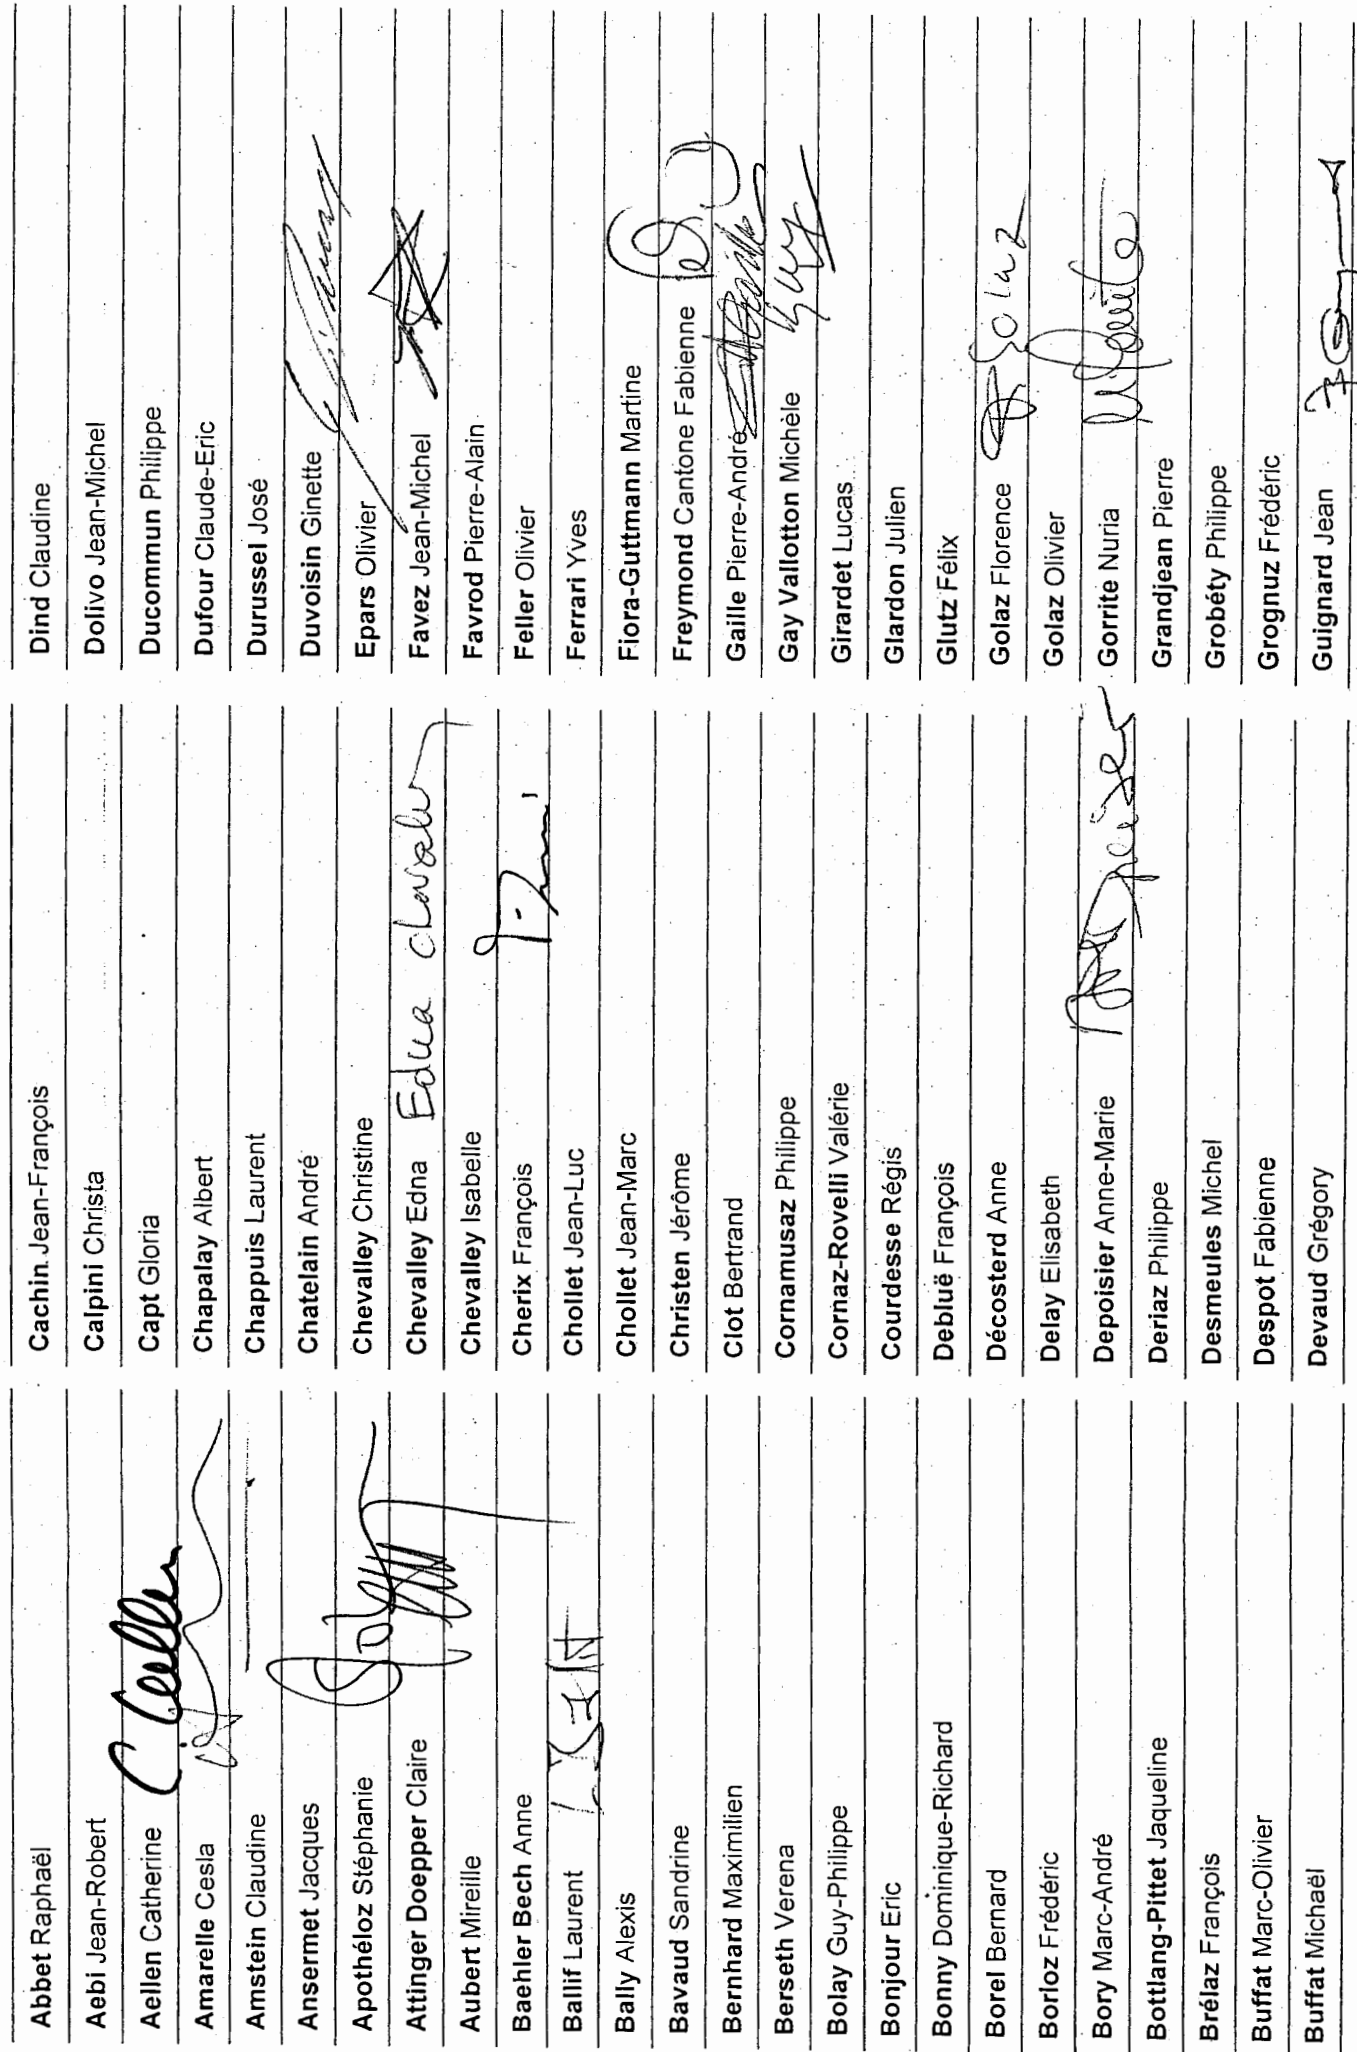 Abbet Raphaël
Aebi Jean-Robert
Aellen Catherine
Amarelle Cesla
Amstein Claudine
Ansermet Jacques
Apothéloz Stéphanie
Attinger Doepper Claire
Aubert Mireille
Baehler Bech Anne
Ballif Laurent
Bally Alexis
Bavaud Sandrine
Bernhard Maximilien
Berseth Verena
Bolay Guy-Philippe
Bonjour Eric
Bonny Dominique-Richard
Borel Bernard
Borloz Frédéric
Bory Marc-André
Bottlang-Pittet Jaqueline
Brélaz François
Buffat Marc-Olivier
Buffat Michaël
Cachin Jean-François
Calpini Christa
Capt Gloria
Chapalay Albert
Chappuis Laurent
Chatelain André
Chevalley Christine
Chevalley Edna Edna Chevalley
Chevalley Isabelle
Cherix François
Chollet Jean-Luc
Chollet Jean-Marc
Christen Jérôme
Clot Bertrand
Cornamusaz Philippe
Cornaz-Rovelli Valérie
Courdesse Régis
Debluë François
Décosterd Anne
Delay Elisabeth
Depoisier Anne-Marie
Deriaz Philippe
Desmeules Michel
Despot Fabienne
Devaud Grégory
Dind Claudine
Dolivo Jean-Michel
Ducommun Philippe
Dufour Claude-Eric
Durussel José
Duvoisin Ginette
Epars Olivier
Favez Jean-Michel
Favrod Pierre-Alain
Feller Olivier
Ferrari Yves
Fiora-Guttmann Martine
Freymond Cantone Fabienne
Gaille Pierre-André
Gay Vallotton Michèle
Girardet Lucas
Glardon Julien
Glutz Félix
Golaz Florence Golaz
Golaz Olivier
Gorrite Nuria
Grandjean Pierre
Grobéty Philippe
Grognuz Frédéric
Guignard Jean